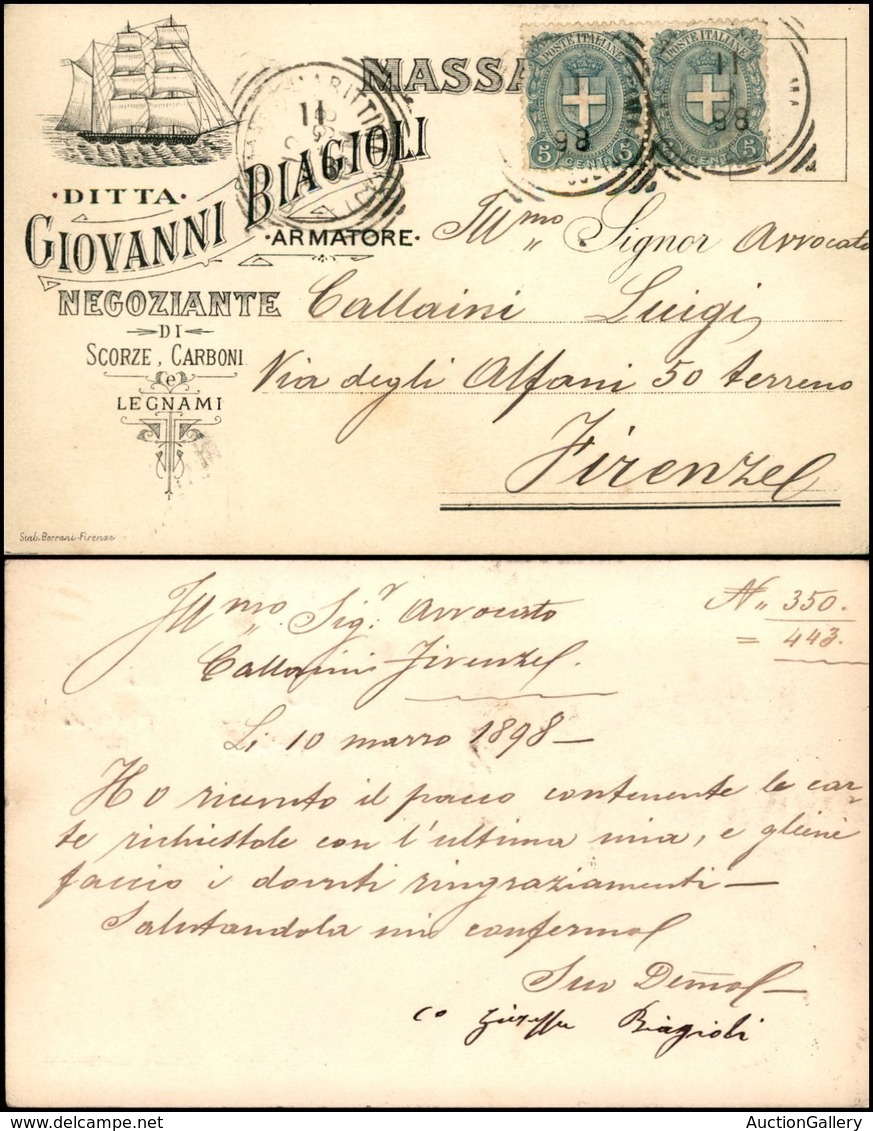 MASSA
POSTE ITALIANE POSTE ITALIANE
11
98
11
98
5 CENT 5
5 CENT 5
11
98
·DITTA·
GIOVANNI BIAGIOLI
·ARMATORE·
NEGOZIANTE
DI
SCORZE, CARBONI
e
LEGNAMI
Stab. Borrani-Firenze
Illmo Signor Avvocato
Callaini Luigi,
Via degli Alfani 50 terreno
Firenze
Illmo Sigr. Avvocato
Callaini Firenze
N" 350.
= 443.
Li 10 marzo 1898 —
Ho ricevuto il pacco contenente le car-
te richiestole con l'ultima mia, e gliene
faccio i dovuti ringraziamenti —
Salutandola mi confermo
Suo Devmo
Biagioli
AuctionGallery